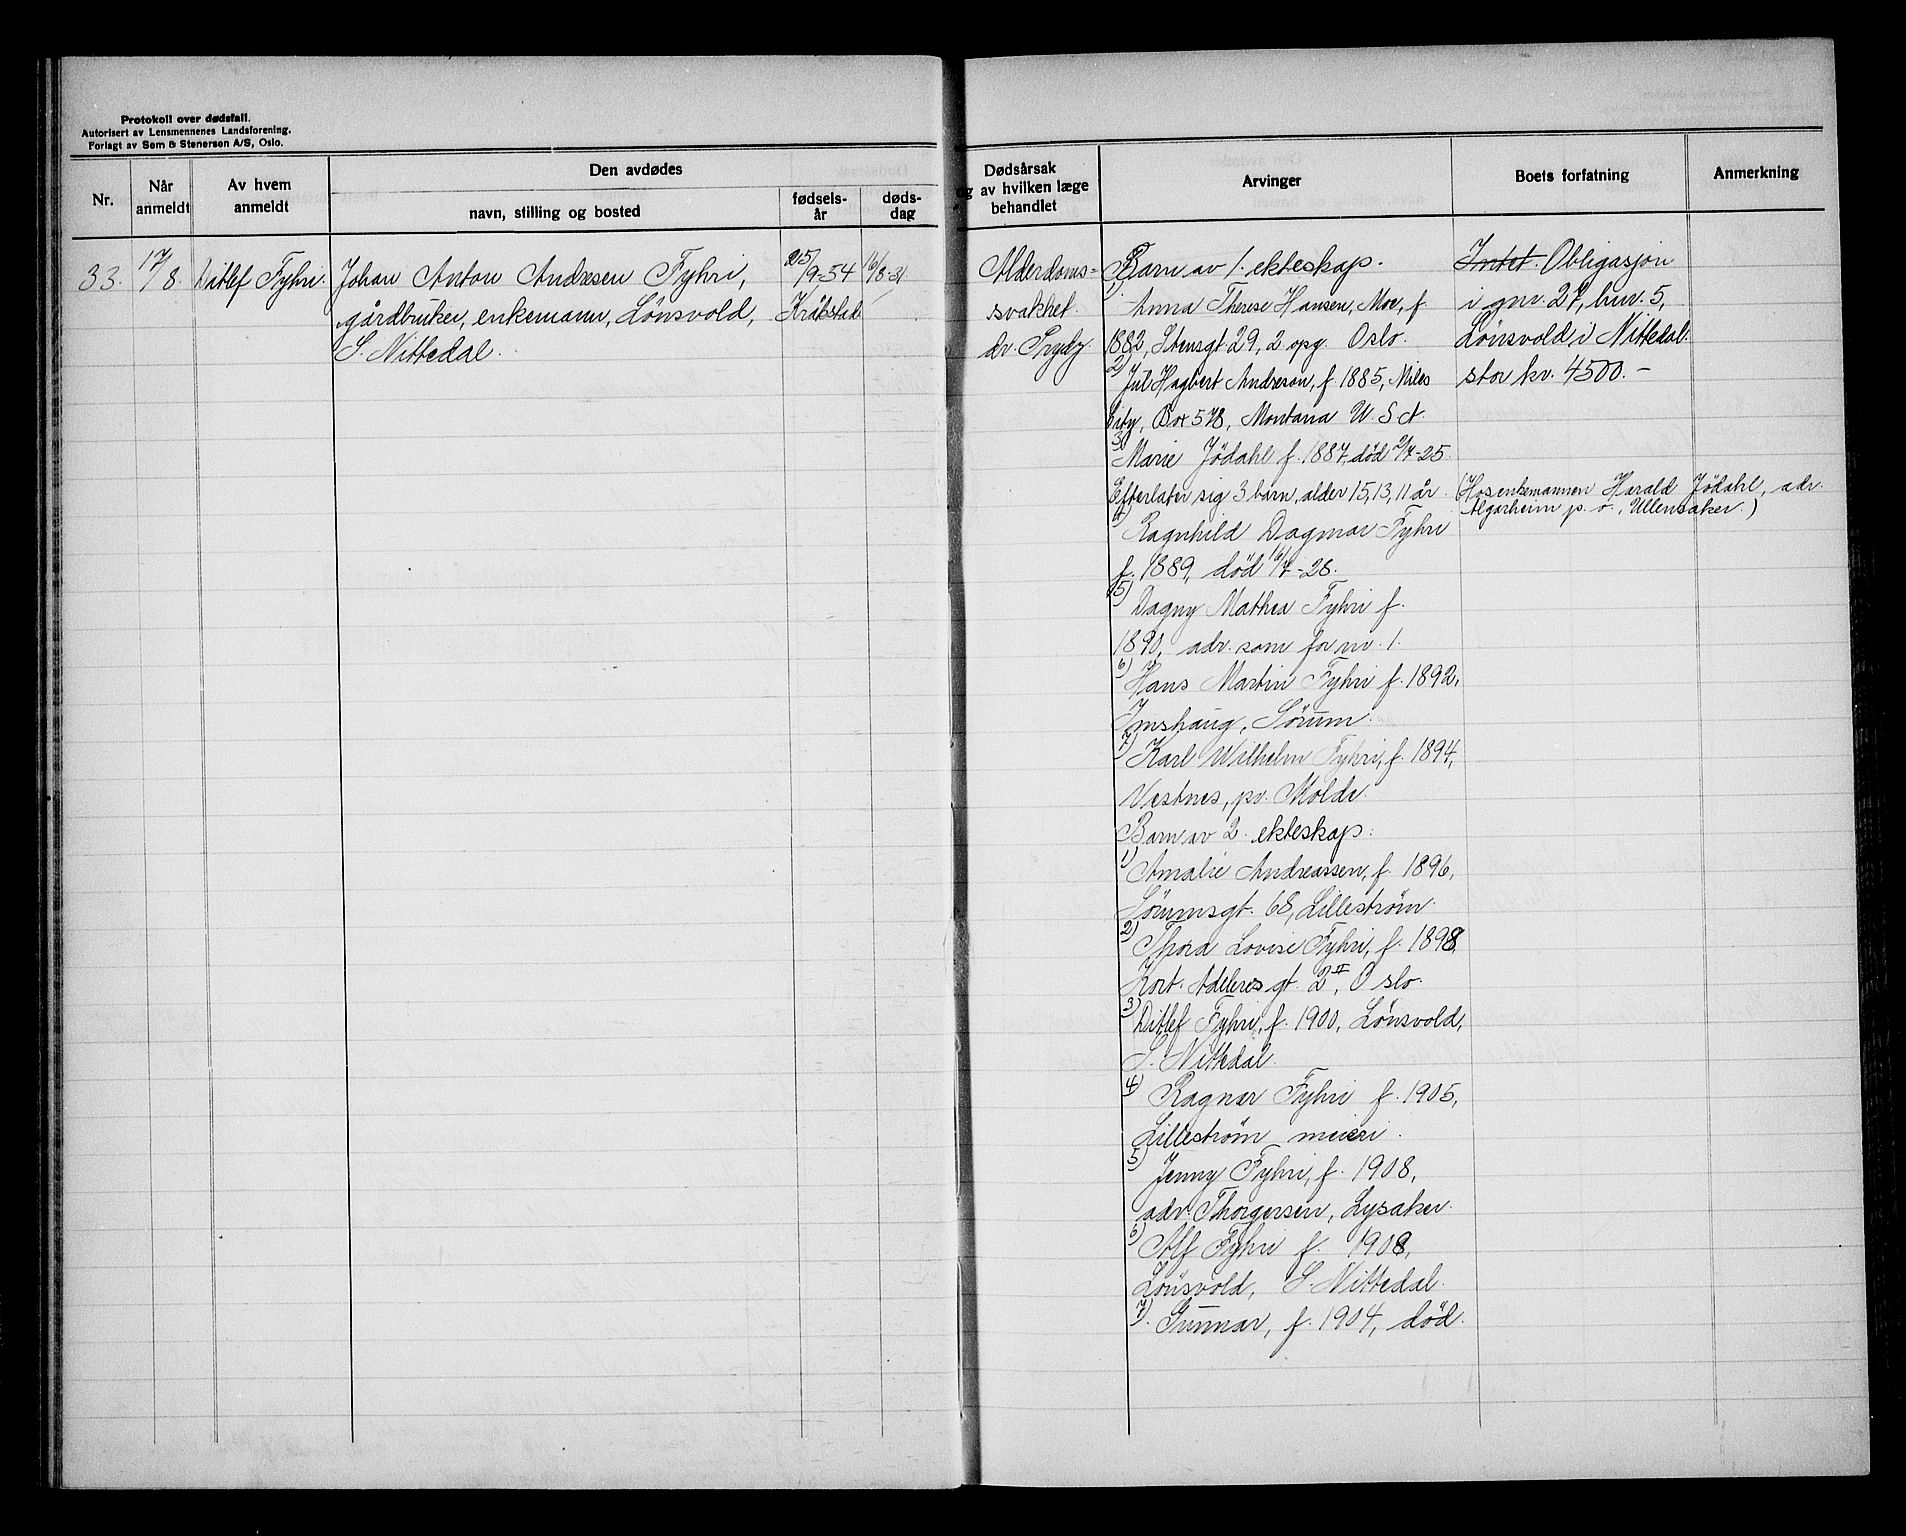 Protokoll over dødsfall.
Autorisert av Lensmennenes Landsforening.
Forlagt av Sem & Stenersen A/S, Oslo.
Nr.
Når anmeldt
Av hvem anmeldt
Den avdødes
navn, stilling og bosted
fødselsår
dødsdag
Dødsårsak
og av hvilken læge
behandlet
Arvinger
Boets forfatning
Anmerkning
33.
17/8
Ditlef Fyhri.
Johan Anton Andresen Fyhri,
gårdbruker, enkemann, Lönsvold,
S. Nittedal.
25/9-54
Kråkstad
16/8-31
Alderdoms=
svakhet.
dr. Prydz
Barn av 1. ekteskap.
1) Anna Therese Hansen, Moe, f.
1882, Stensgt 29, 2 opg. Oslo.
2) Jul Hagbert Andreson, f. 1885, Miles
City, Box 578, Montana U.S.A.
3) Marie Jödahl f. 1887, død 2/7-25.
Efterlater sig 3 barn, alder 15, 13, 11 år.
4) Ragnhild Dagmar Fyhri
f. 1889, död 16/7-28.
5) Dagny Mathea Fyhri f.
1890, adr. som for nr. 1.
6) Hans Martin Fyhri f. 1892,
Imshaug, Sörum.
7) Karl Wilhelm Fyhri, f. 1894,
Vestnes, pr. Molde.
Barn av 2. ekteskap:
1) Amalie Andreassen, f. 1896,
Sörumsgt. 68, Lilleström.
2) Thora Lovise Fyhri, f. 1898,
Kort. Adeleres gt. 2 II, Oslo.
3) Ditlef Fyhri, f. 1900, Lönsvold,
S. Nittedal.
4) Ragnar Fyhri f. 1905,
Lilleström meieri.
5) Jenny Fyhri, f. 1908,
adr. Thorgersen, Lysaker.
6) Alf Fyhri f. 1908,
Lönsvold, S. Nittedal.
7) Gunnar, f. 1904, död.
Intet. Obligasjon
i gnr. 27, bnr. 5,
Lönsvold i Nittedal.
stor kr. 4500.-
(Hos enkemannen Harald Jödahl, adr.
Algarheim p. o., Ullensaker.)